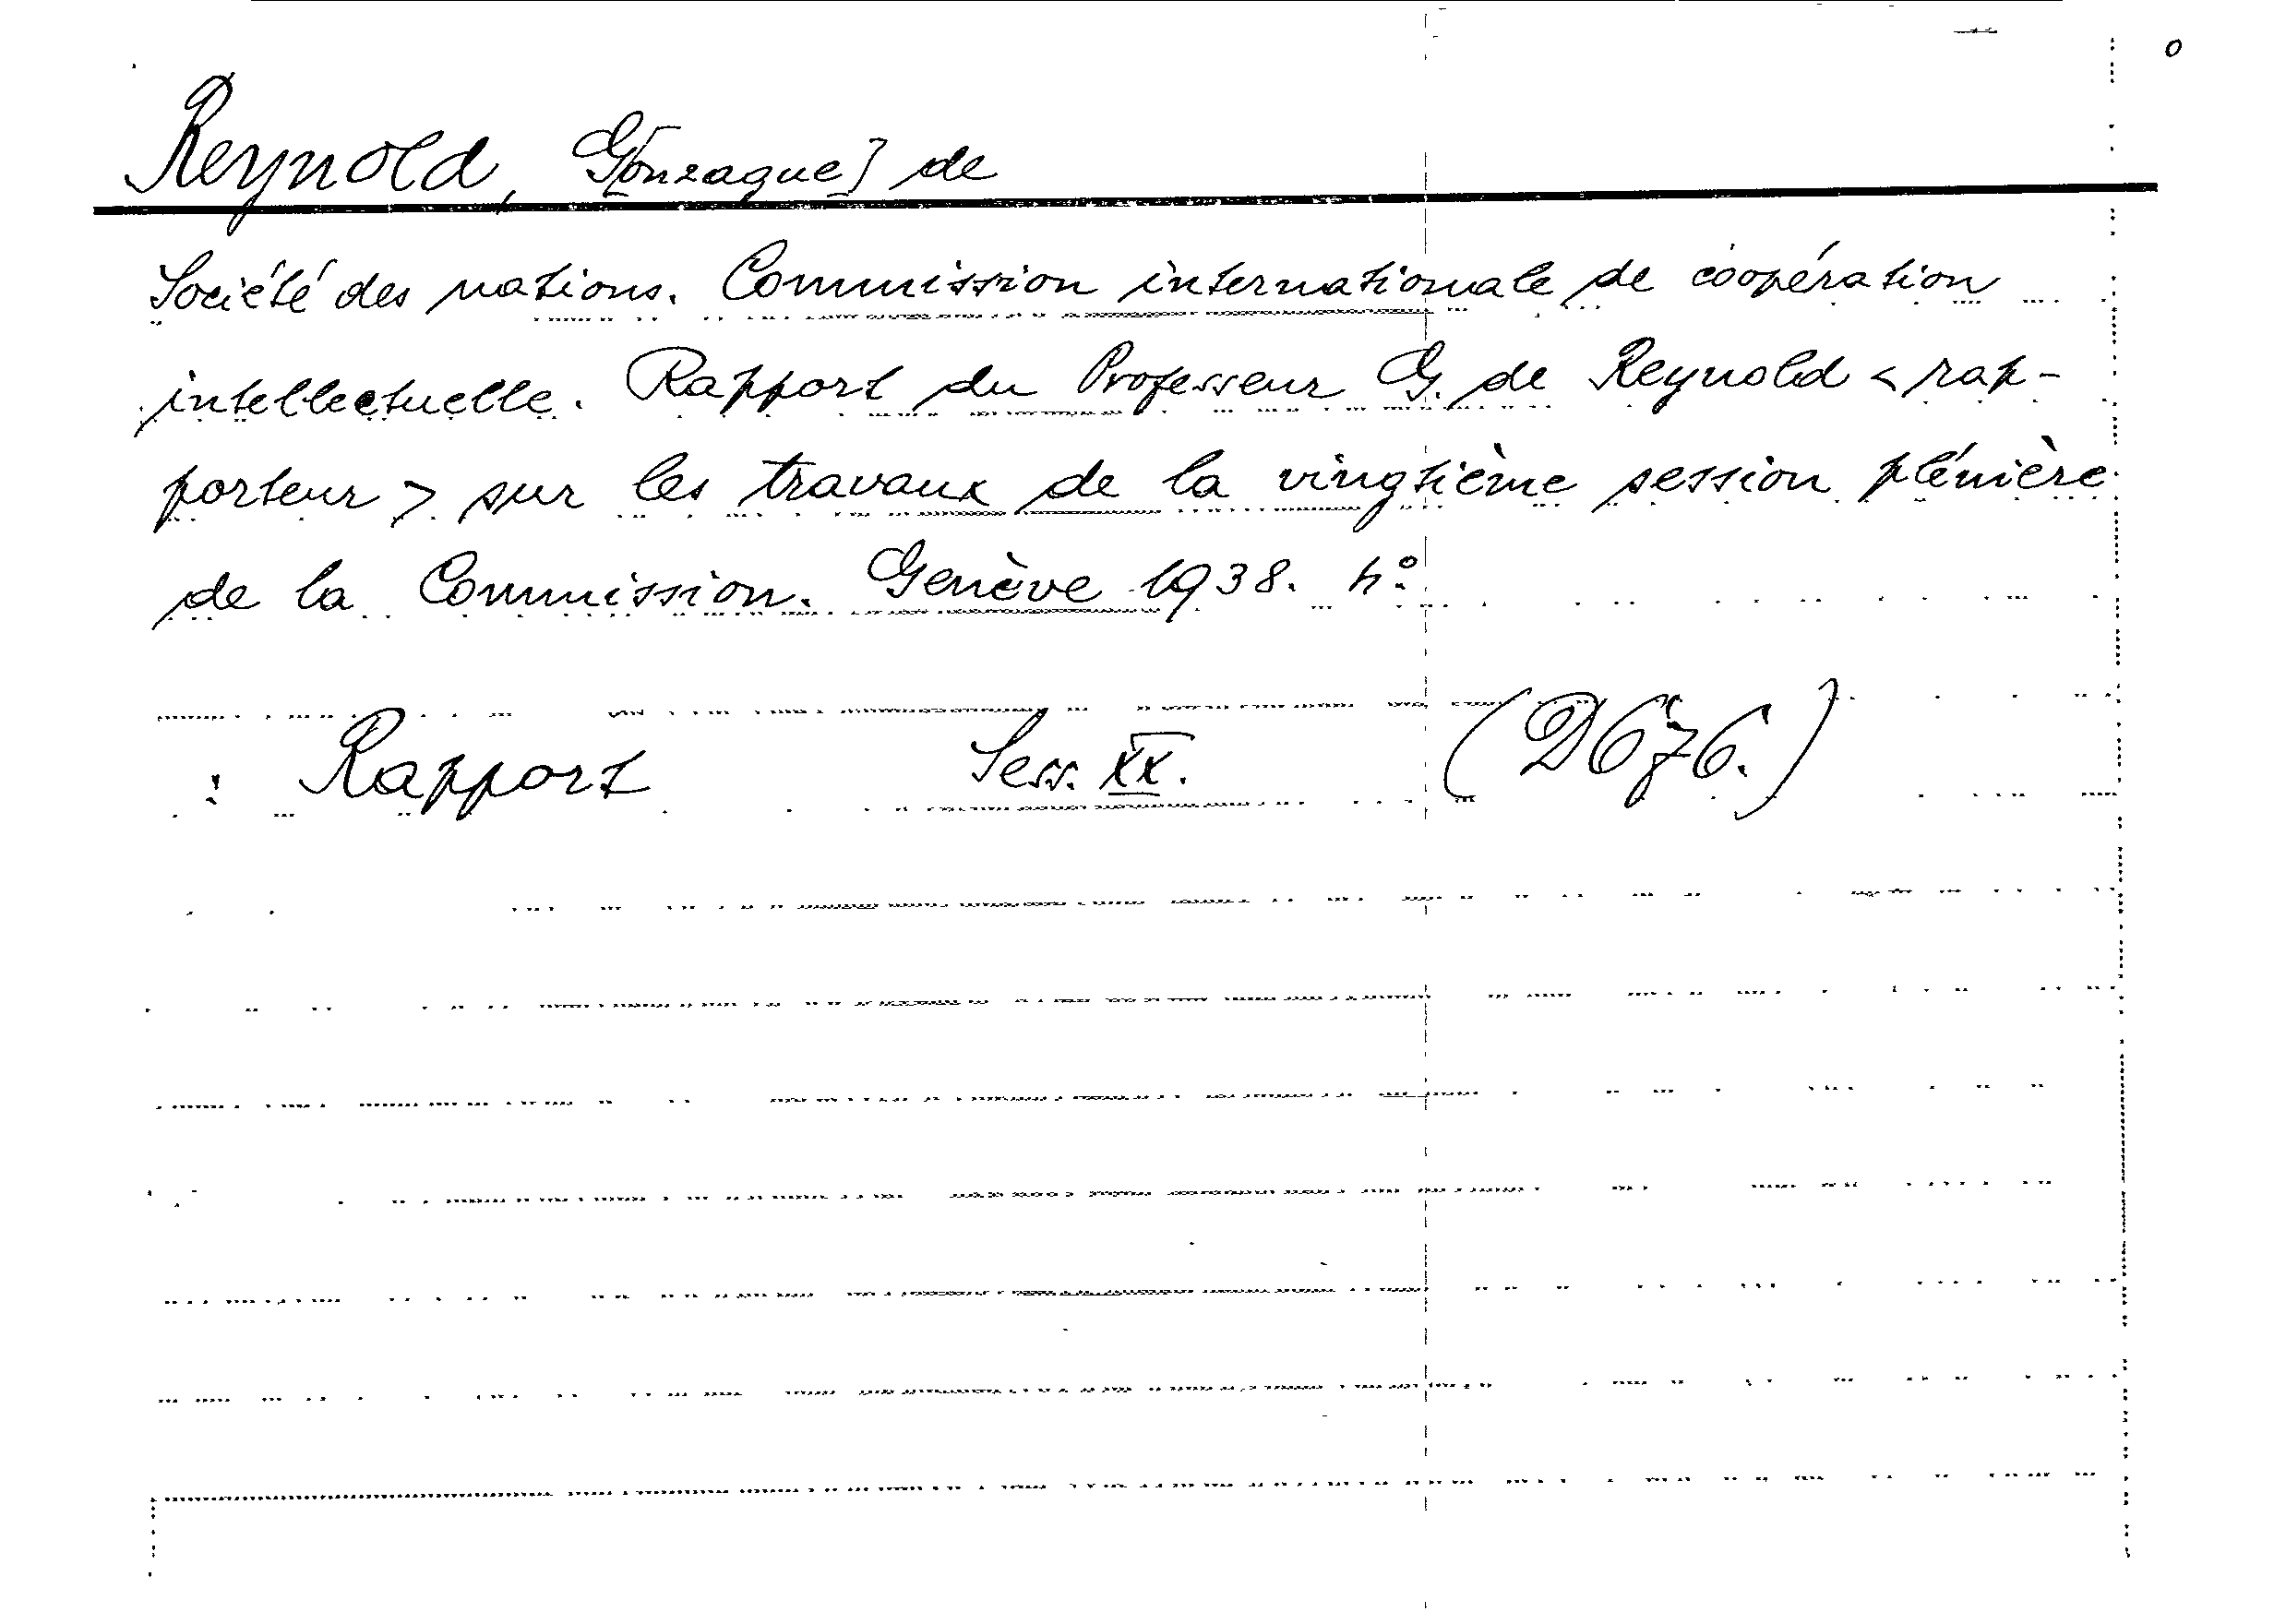 Reynold, G[onzague] de
Société des nations. Commission internationale de coopération
intellectuelle. Rapport du Professeur G. de Reynold < rap-
porteur > sur les travaux de la vingtième session plénière
de la Commission. Genève 1938. 4:o
: Rapport Sess. XX. (D676.)